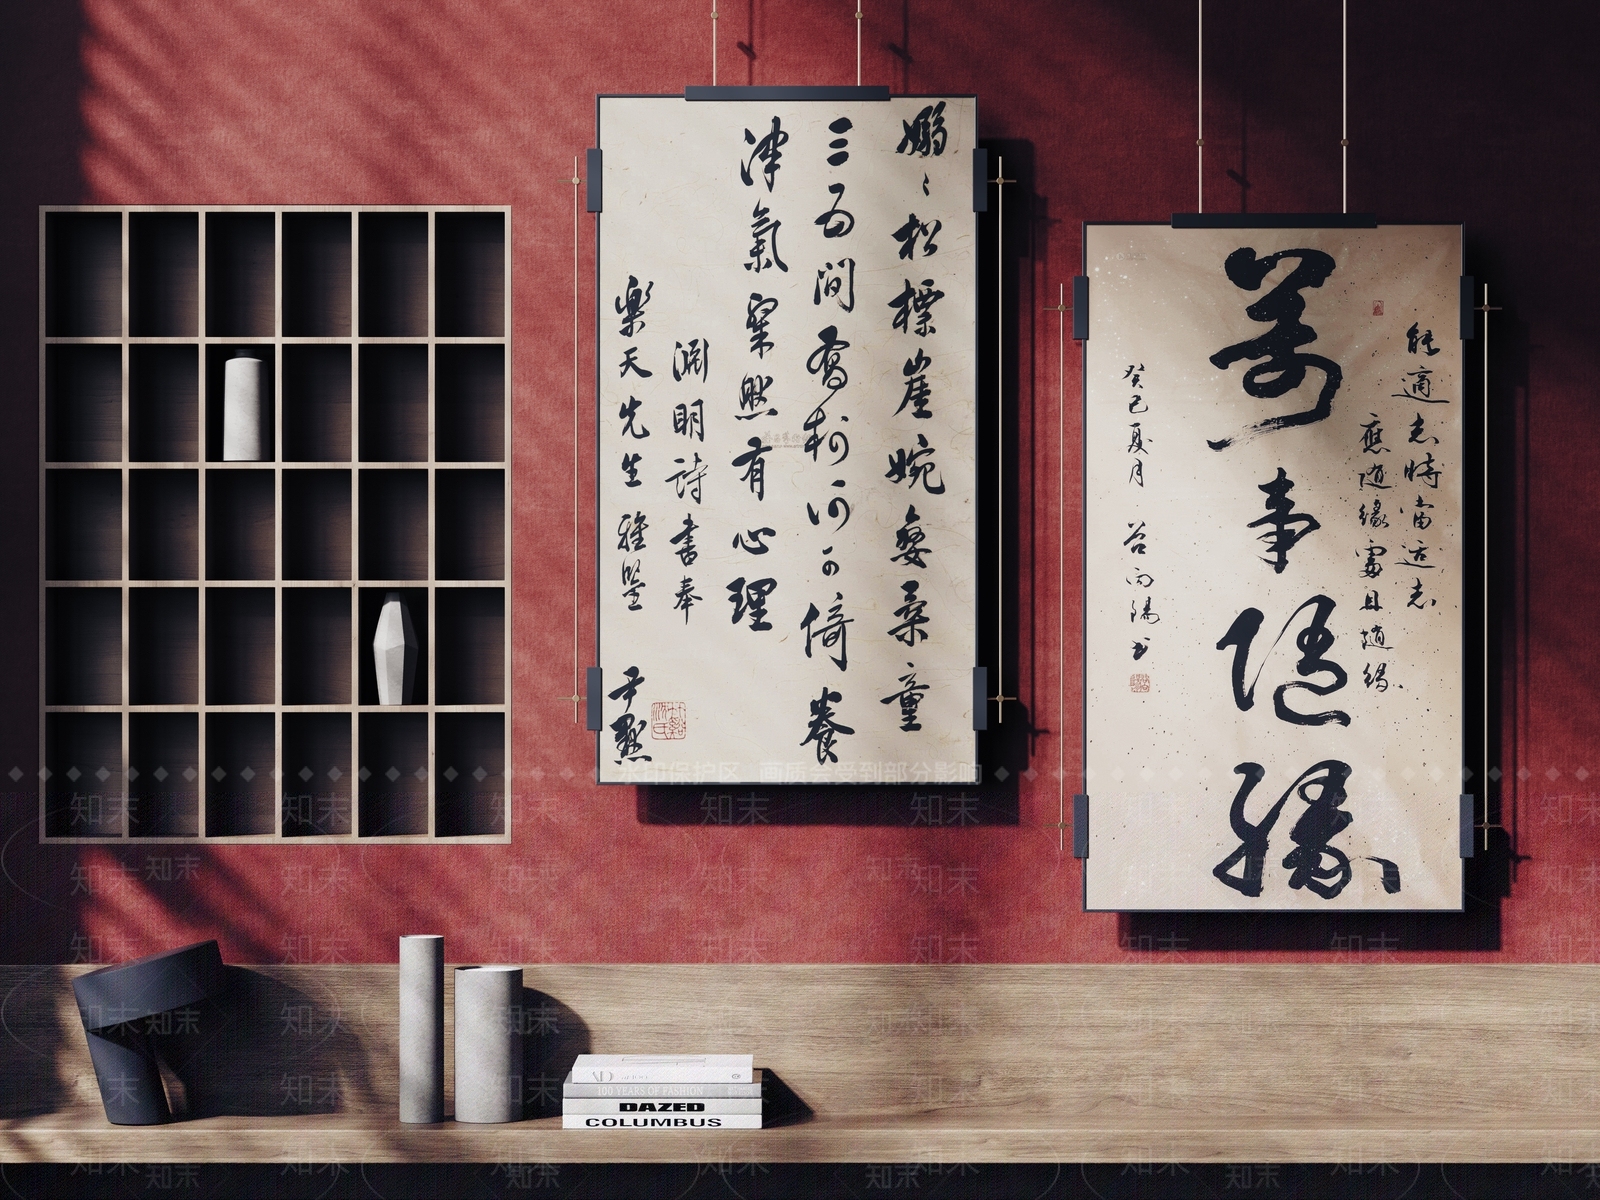 嫋〻松標崖婉孌柔童
三五間喬柯何可倚養
津氣粲然有心理
淵明詩書奉
樂天先生雅鑒
尹默
能適志時當适志
應隨緣處且隨緣
萬事隨緣
癸巳夏月 谷向陽书
水印保护区 画质会受到部分影响
知末
100 YEARS OF FASHION
DAZED
COLUMBUS